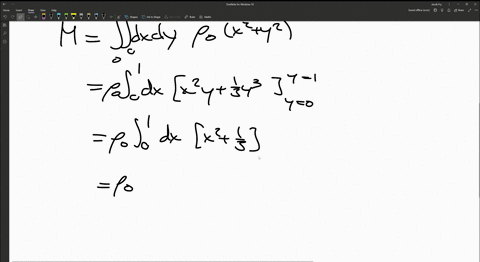 M = ∬₀ dxdy ρ₀ (x²+y²)
= ρ₀∫₀¹ dx [x²y + ⅓y³]_{y=0}^{y=1}
= ρ₀ ∫₀¹ dx [x² + ⅓]
= ρ₀